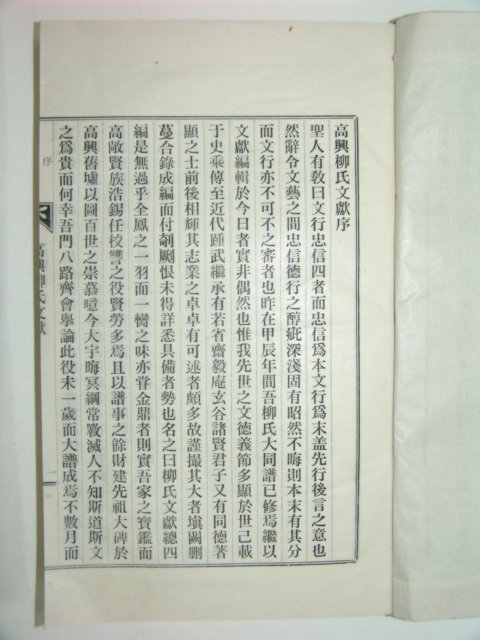 高興柳氏文獻序
聖人有敎曰文行忠信四者而忠信爲本文行爲末盖先行後言之意也
然辭令文藝之間忠信德行之醇疵深淺固有昭然不晦則本末有其分
而文行亦不可不之審者也昨在甲辰年間吾柳氏大同譜已修焉繼以
文獻編輯於今日者實非偶然也惟我先世之文德義節多顯於世已載
于史乘傳至近代踵武繼承有若省齋毅庵玄谷諸賢君子又有同德著
顯之士前後相輝其志業之卓卓有可述者頗多故謹撮其大者塡闕刪
蔓合錄成編而付剞劂恨未得詳悉具備者勢也名之曰柳氏文獻總四
編是無過乎全鳳之一羽而一臠之味亦甞金鼎者則實吾家之寶鑑而
高敞賢族浩錫任校讐之役賢勞多焉且以譜事之餘財建先祖大碑於
高興舊墟以圖百世之崇慕噫今大宇晦冥綱常斁滅人不知斯道斯文
之爲貴而何幸吾門八路齊會擧論此役未一歲而大譜成焉不數月而
序
高興柳氏文獻
一